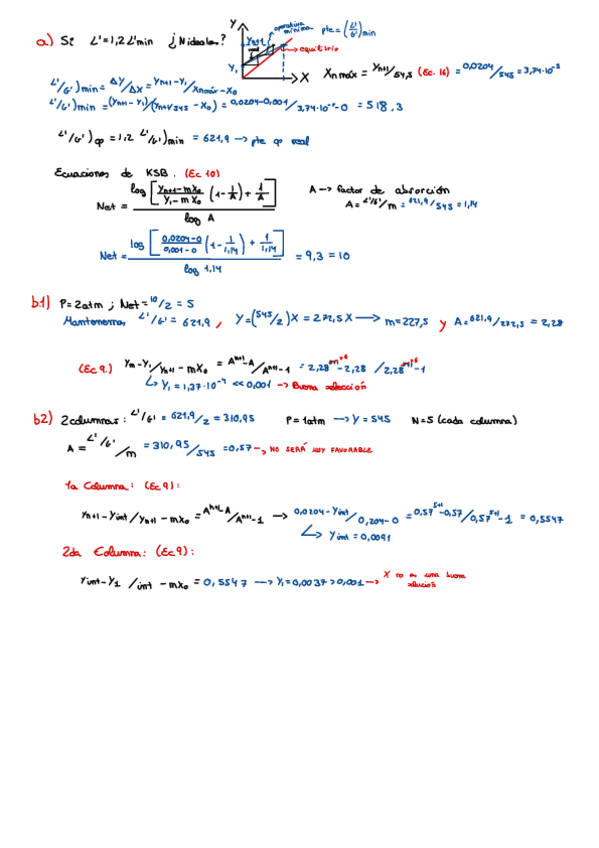 a) Si L'=1,2L'min ¿Nideales?
Y
Yn+1
Y1
X
operativa mínima
pte=(L'/G')min
equilibrio
Xnmáx = Yn+1/545 (Ec. 16) = 0,0204/545 = 3,74·10⁻⁵
L'/G')min = ΔY/ΔX = Yn+1-Y1/Xnmáx-X0
L'/G')min = (Yn+1-Y1)/(Yn+1/545 - X0) = 0,0204-0,001/3,74·10⁻⁵-0 = 518,3
L'/G')op = 1,2 L'/G')min = 621,9 → pte op real
Ecuaciones de KSB. (Ec 10)
Net = log [Yn+1-mX0/Y1-mX0 (1-1/A) + 1/A] / log A
A → factor de absorción
A = L'/G'/m = 621,9/545 = 1,14
Net = log [0,0204-0/0,001-0 (1-1/1,14) + 1/1,14] / log 1,14 = 9,3 = 10
b.1) P=2atm ; Net = 10/2 = 5
Mantenemos L'/G' = 621,9, Y=(545/2)X = 272,5X → m=227,5 y A=621,9/272,5 = 2,28
(Ec 9.) Yn-Y1/Yn+1-mX0 = Aⁿ⁺¹-A/Aⁿ⁺¹-1 = 2,28ⁿ⁺¹⁼⁶-2,28 /2,28ⁿ⁺¹⁼⁶-1
↳ Y1 = 1,37·10⁻⁴ << 0,001 → Buena selección
b2) 2 columnas: L'/G' = 621,9/2 = 310,95 P=1atm → Y=545 N=5 (cada columna)
A = L'/G'/m = 310,95/545 = 0,57 → NO SERÁ MUY FAVORABLE
1a Columna: (Ec 9):
Yn+1-Yint/Yn+1-mX0 = Aⁿ⁺¹-A/Aⁿ⁺¹-1 → 0,0204-Yint/0,204-0 = 0,57⁵⁺¹-0,57/0,57⁵⁺¹-1 = 0,5547
↳ Yint = 0,0091
2da Columna: (Ec 9):
Yint-Y1/int-mX0 = 0,5547 → Y1=0,0037>0,001 → X no es una buena solución